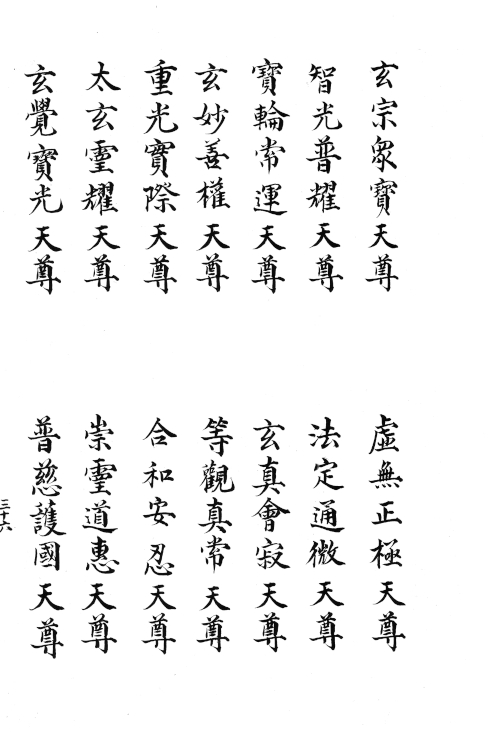 玄宗眾寳天尊
虛無正極天尊
智光普耀天尊
法定通微天尊
寳輪常運天尊
玄真會寂天尊
玄妙善權天尊
等觀真常天尊
重光實際天尊
合和安忍天尊
太玄靈耀天尊
崇靈道惠天尊
玄覺寳光天尊
普慈護國天尊
三十六